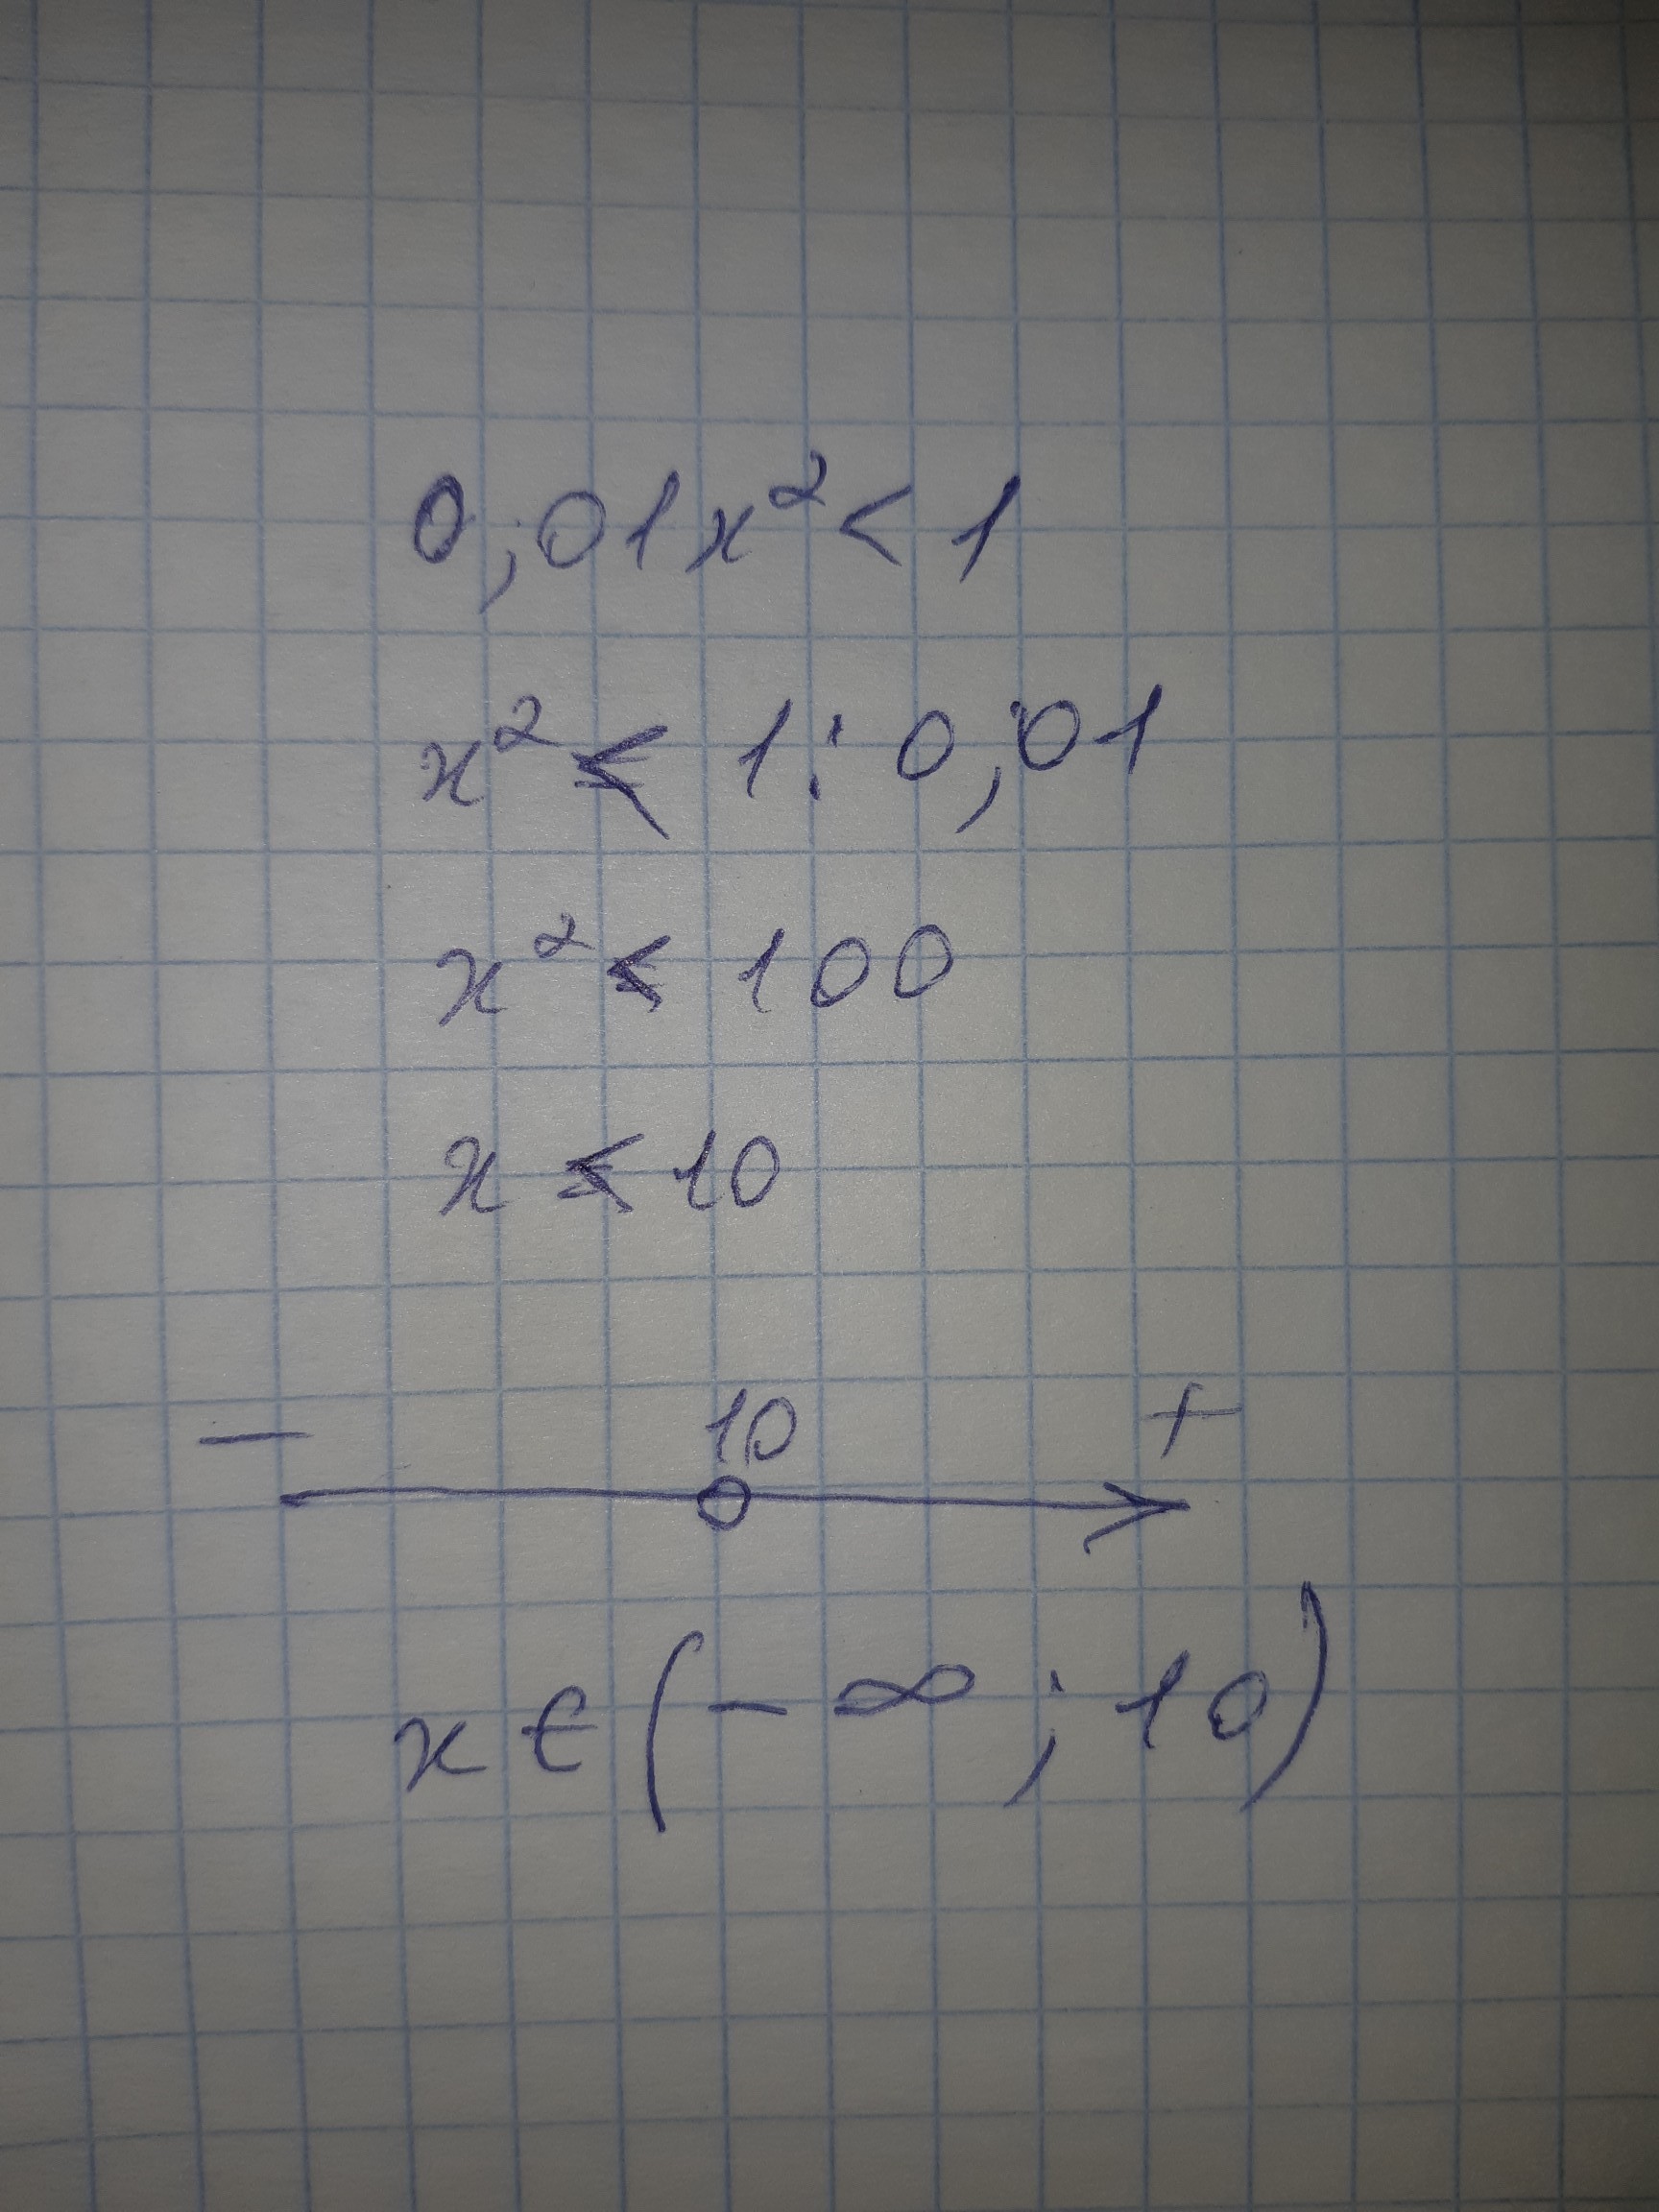 0,01x² < 1
x² < 1 : 0,01
x² < 100
x < 10
− 10 +
x ∈ (−∞ ; 10)